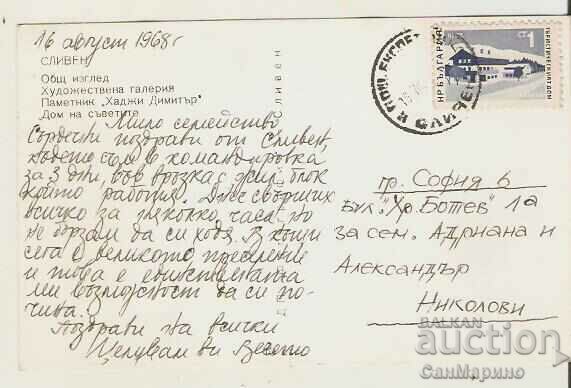 16 август 1968 г
СЛИВЕН
Общ изглед
Художествена галерия
Паметник „Хаджи Димитър"
Дом на съветите
Сливен
Мило семейство
Сърдечни поздрави от Сливен,
където съм в командировка
за 3 дни, във връзка с жил. блок
който работя. Днес свърших
всичко за няколко часа, но
не бързам да си ходя. В къщи
сега е великото преселение
и това е единствената
ми възможност да си по-
чина.
Поздрави на всички
Целувам ви Весето
гр. София 6
бул. "Хр. Ботев" 1а
за сем. Адриана и
Александър
Николови
НР БЪЛГАРИЯ
СТ 1
ТУРИСТИЧЕСКИЯТ ДОМ
СЛИВЕН
BALKAN
auction
СанМарино